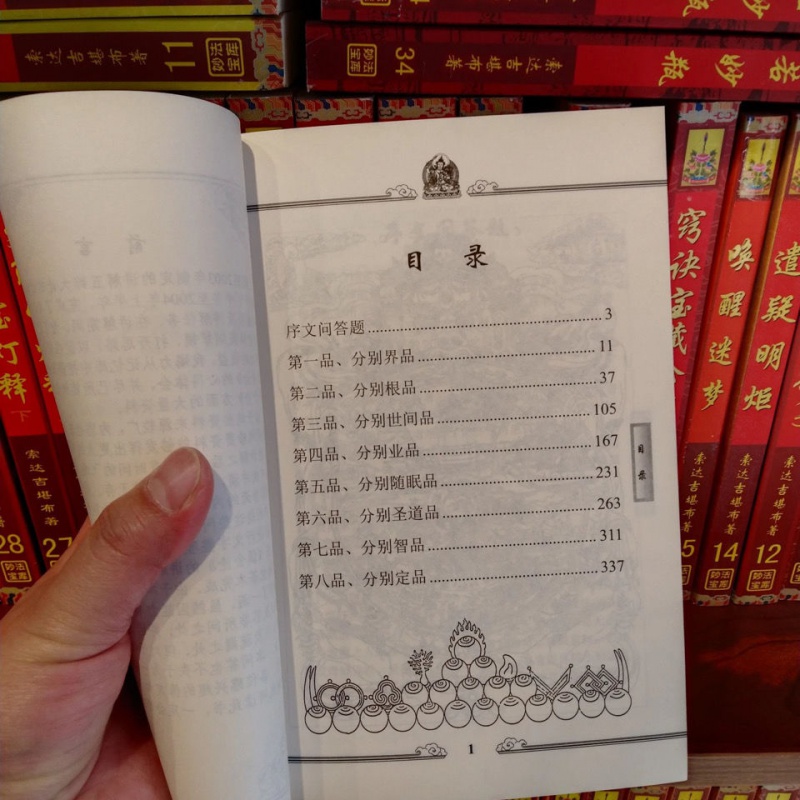 11
索达吉堪布著
妙法宝库
34
妙法宝库
索达吉堪布著
妙瓶
目 录
序文问答题 3
第一品、分别界品 11
第二品、分别根品 37
第三品、分别世间品 105
第四品、分别业品 167
第五品、分别随眠品 231
第六品、分别圣道品 263
第七品、分别智品 311
第八品、分别定品 337
目录
1
前言
灯释
下
索达吉堪布著
28
27
妙法宝库
窍诀宝藏
5
唤醒迷梦
索达吉堪布著
14
妙法宝库
遣疑明炬
索达吉堪布著
12
妙法宝库